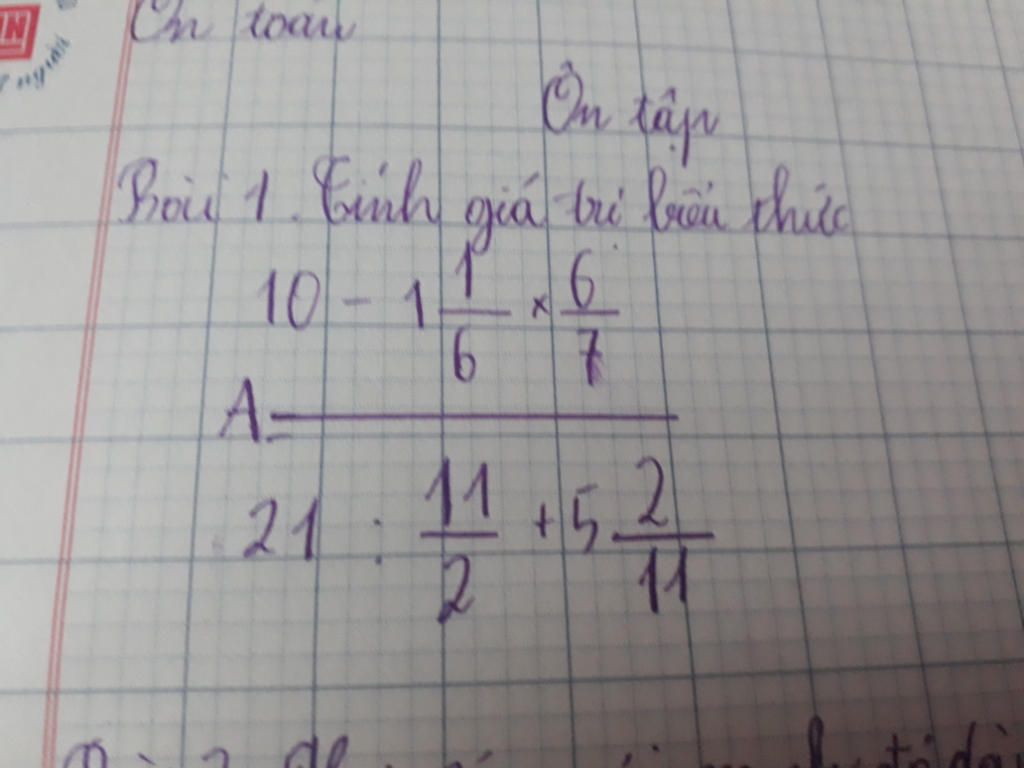 Ôn toán
Ôn tập
Bài 1. Tính giá trị biểu thức
10 - 1 1/6 × 6/7
A =
21 : 11/2 + 5 2/11